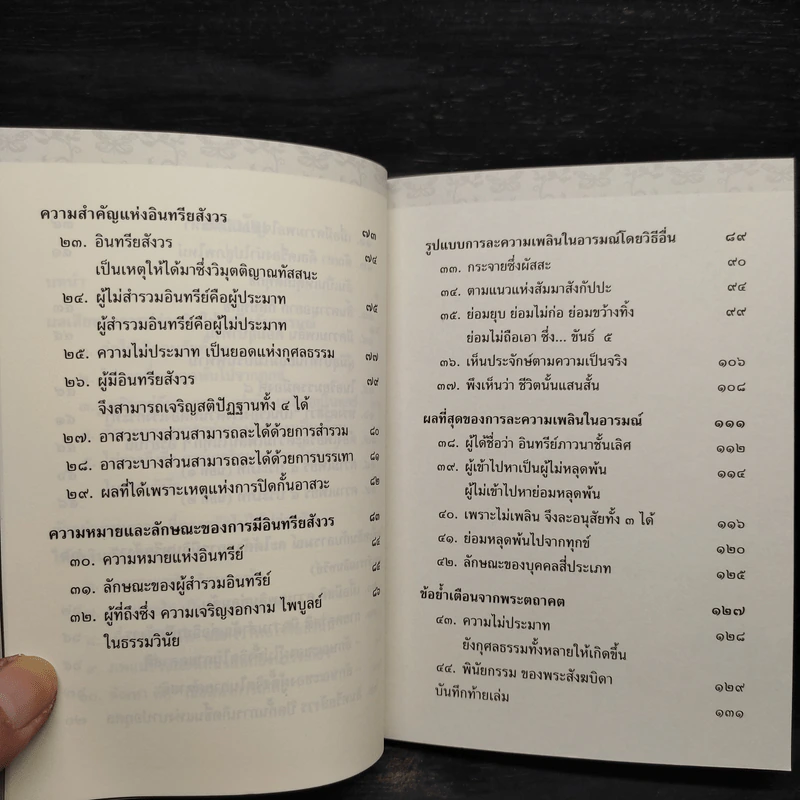 ความสำคัญแห่งอินทรียสังวร ๗๓
๒๓. อินทรียสังวร ๗๔
เป็นเหตุให้ได้มาซึ่งวิมุตติญาณทัสสนะ
๒๔. ผู้ไม่สำรวมอินทรีย์คือผู้ประมาท ๗๕
ผู้สำรวมอินทรีย์คือผู้ไม่ประมาท
๒๕. ความไม่ประมาท เป็นยอดแห่งกุศลธรรม ๗๗
๒๖. ผู้มีอินทรียสังวร ๗๙
จึงสามารถเจริญสติปัฏฐานทั้ง ๔ ได้
๒๗. อาสวะบางส่วนสามารถละได้ด้วยการสำรวม ๘๐
๒๘. อาสวะบางส่วนสามารถละได้ด้วยการบรรเทา ๘๑
๒๙. ผลที่ได้เพราะเหตุแห่งการปิดกั้นอาสวะ ๘๒
ความหมายและลักษณะของการมีอินทรียสังวร ๘๓
๓๐. ความหมายแห่งอินทรีย์ ๘๔
๓๑. ลักษณะของผู้สำรวมอินทรีย์ ๘๕
๓๒. ผู้ที่ถึงซึ่ง ความเจริญงอกงาม ไพบูลย์ ๘๖
ในธรรมวินัย
รูปแบบการละความเพลินในอารมณ์โดยวิธีอื่น ๘๙
๓๓. กระจายซึ่งผัสสะ ๙๐
๓๔. ตามแนวแห่งสัมมาสังกัปปะ ๙๔
๓๕. ย่อมยุบ ย่อมไม่ก่อ ย่อมขว้างทิ้ง ๙๙
ย่อมไม่ถือเอา ซึ่ง... ขันธ์ ๕
๓๖. เห็นประจักษ์ตามความเป็นจริง ๑๐๖
๓๗. พึงเห็นว่า ชีวิตนั้นแสนสั้น ๑๐๘
ผลที่สุดของการละความเพลินในอารมณ์ ๑๑๑
๓๘. ผู้ได้ชื่อว่า อินทรีย์ภาวนาชั้นเลิศ ๑๑๒
๓๙. ผู้เข้าไปหาเป็นผู้ไม่หลุดพ้น ๑๑๔
ผู้ไม่เข้าไปหาย่อมหลุดพ้น
๔๐. เพราะไม่เพลิน จึงละอนุสัยทั้ง ๓ ได้ ๑๑๖
๔๑. ย่อมหลุดพ้นไปจากทุกข์ ๑๒๐
๔๒. ลักษณะของบุคคลสี่ประเภท ๑๒๕
ข้อย้ำเตือนจากพระตถาคต ๑๒๗
๔๓. ความไม่ประมาท ๑๒๘
ยังกุศลธรรมทั้งหลายให้เกิดขึ้น
๔๔. พินัยกรรม ของพระสังฆบิดา ๑๒๙
บันทึกท้ายเล่ม ๑๓๑